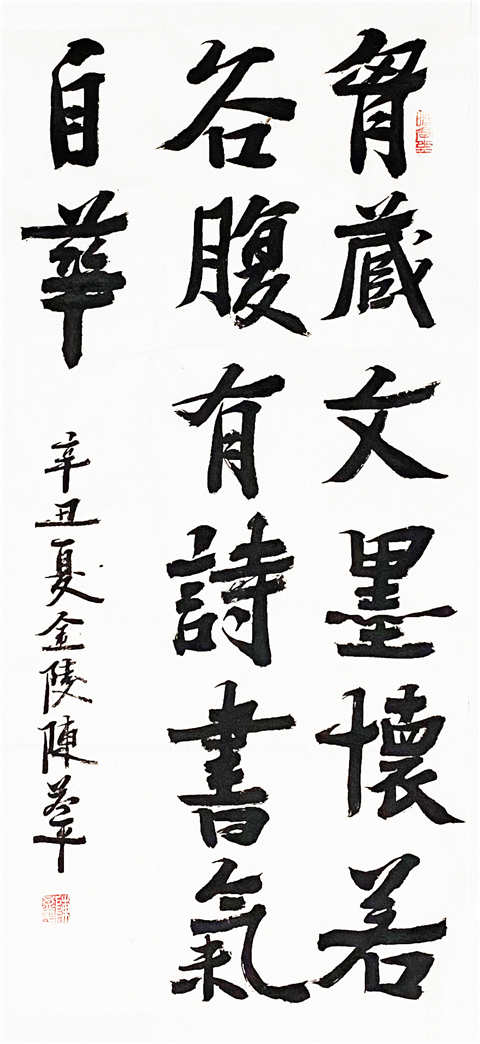 胷藏文墨懷若
谷腹有詩書氣
自華
辛丑夏金陵陳平